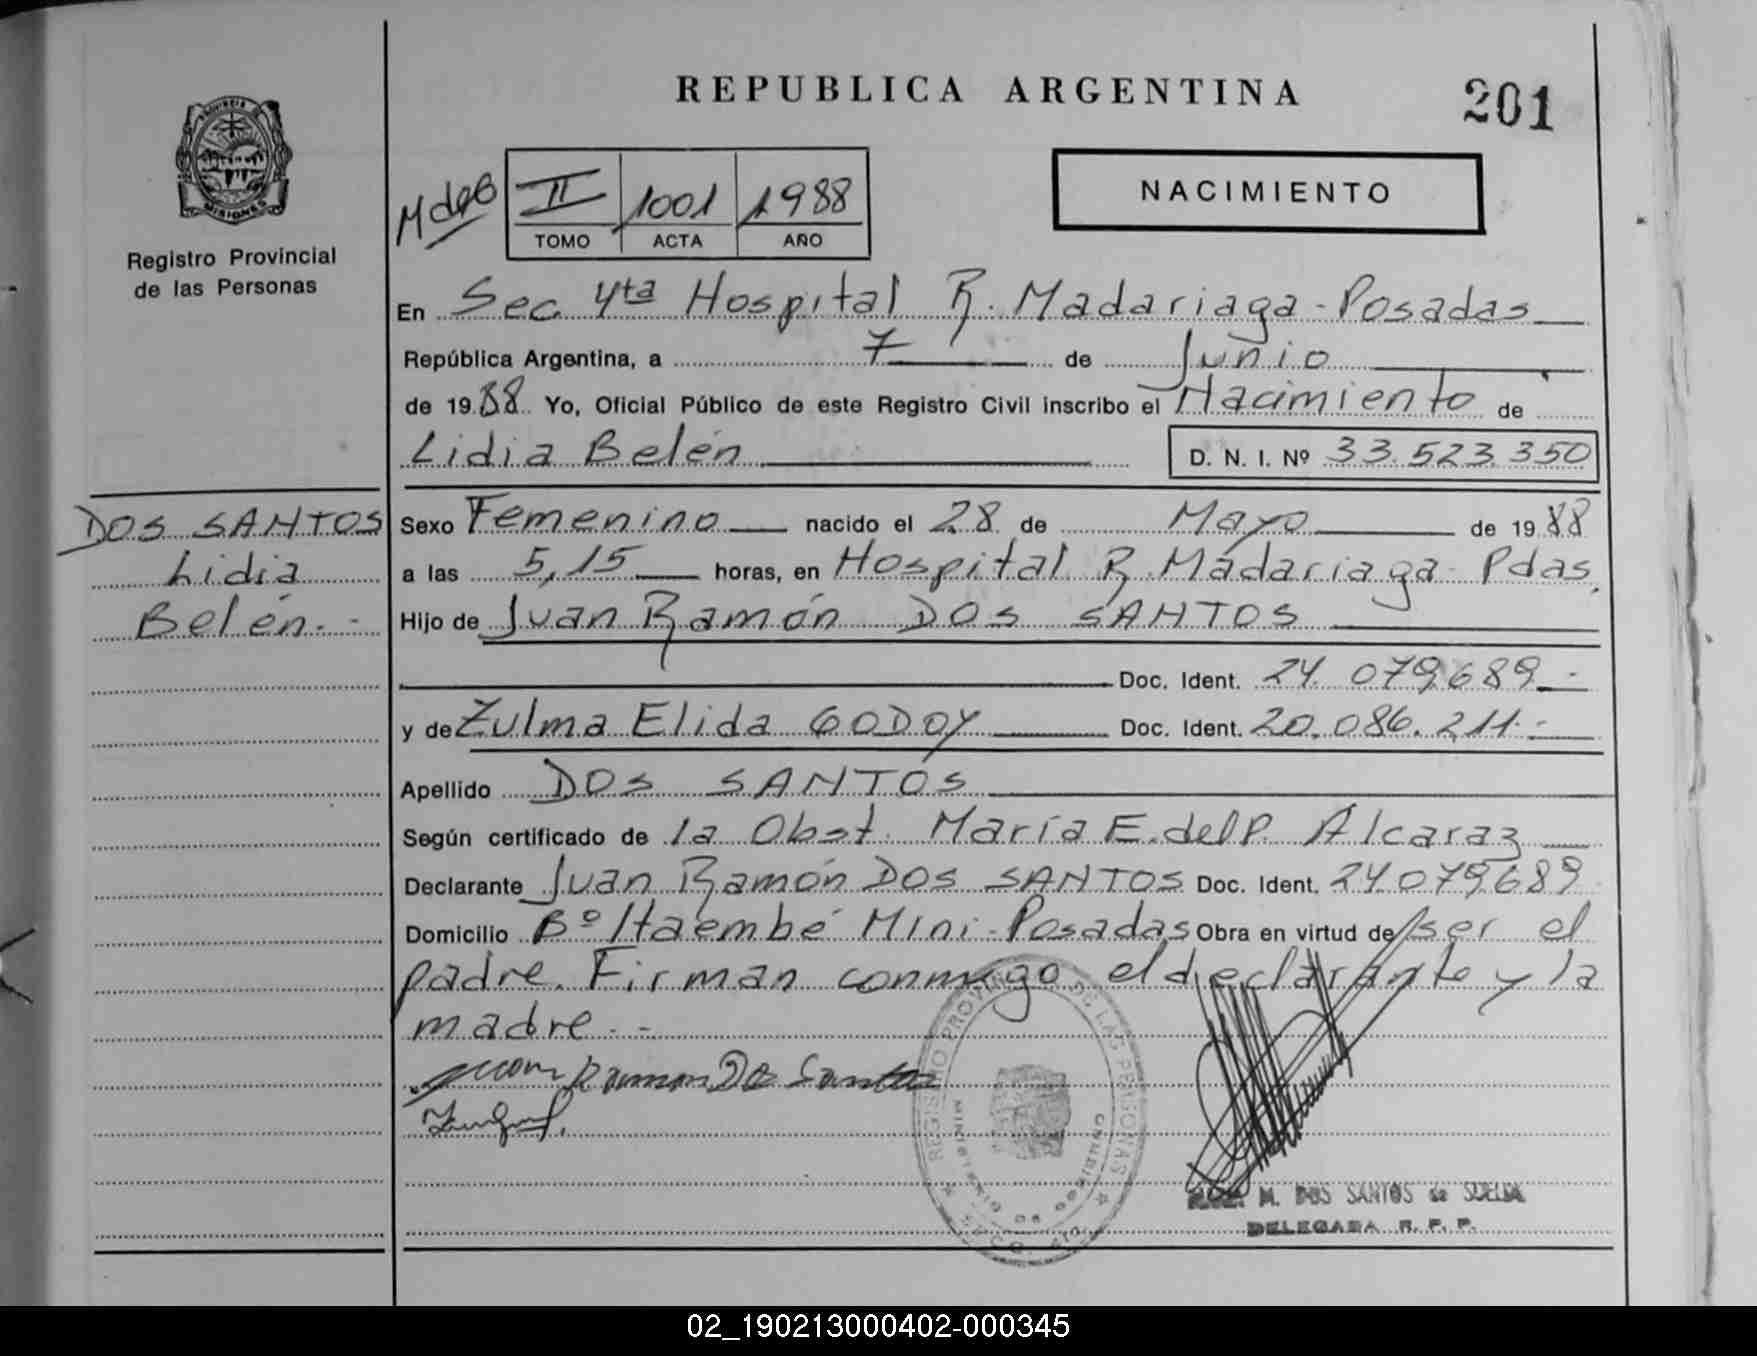 REPUBLICA ARGENTINA
201
PROVINCIA
MISIONES
Registro Provincial
de las Personas
II 1001 1988
TOMO ACTA AÑO
NACIMIENTO
En Sec. 4ta Hospital R. Madariaga - Posadas
República Argentina, a 7 de Junio
de 1988 Yo, Oficial Público de este Registro Civil inscribo el Nacimiento de
Lidia Belén D. N. I. Nº 33.523.350
DOS SANTOS
Lidia
Belén.-
Sexo Femenino nacido el 28 de Mayo de 1988
a las 5,15 horas, en Hospital R. Madariaga - Pdas.
Hijo de Juan Ramón DOS SANTOS
Doc. Ident. 24.079.689.-
y de Zulma Elida GODOY Doc. Ident. 20.086.211.-
Apellido DOS SANTOS
Según certificado de la Obst. María E. del P. Alcaraz
Declarante Juan Ramón DOS SANTOS Doc. Ident. 24.079.689
Domicilio Bº Itaembé Mini - Posadas Obra en virtud de ser el
padre. Firman conmigo el declarante y la
madre.-
Juan Ramon Do Santos
REGISTRO PROVINCIAL DE LAS PERSONAS
MINISTERIO DE GOBIERNO
M. DOS SANTOS de
DELEGADA R. P. P.
02_190213000402-000345